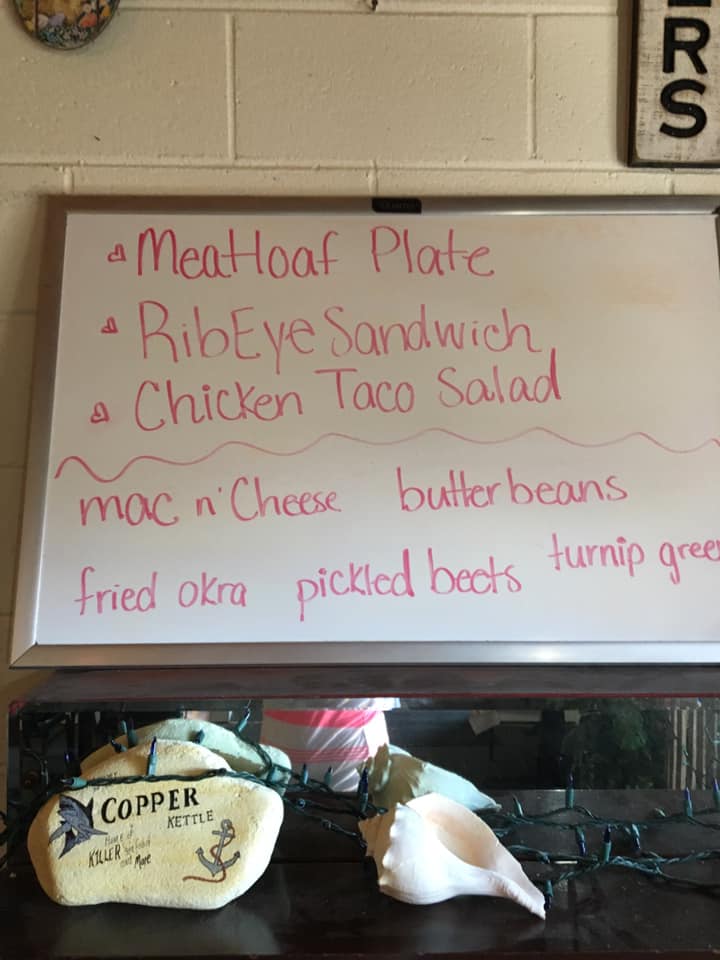 ERS
Meatloaf Plate
RibEye Sandwich
Chicken Taco Salad
mac n' Cheese butterbeans
fried okra pickled beets turnip gree
COPPER
KETTLE
Home of
KILLER
and More